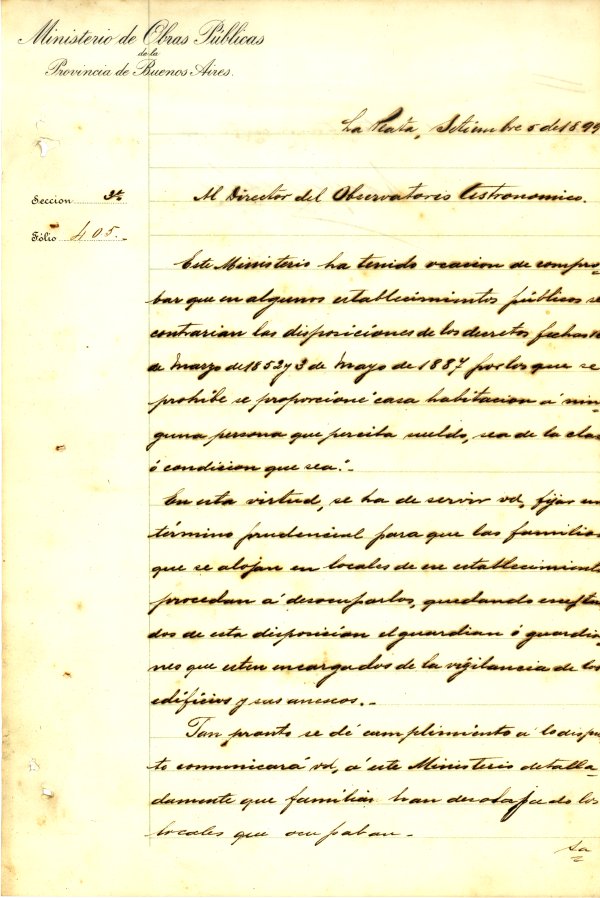 Ministerio de Obras Públicas
de la
Provincia de Buenos Aires.
La Plata, Setiembre 5 de 1899
Seccion 3ª
Al Director del Observatorio Astronomico.
Fólio 405.-
Este Ministerio ha tenido ocasion de compro-
bar que en algunos establecimientos públicos se
contrarian las disposiciones de los decretos fechas
de Marzo de 1852 y 3 de Mayo de 1887 por los que se
prohibe se proporcione casa habitacion á nin-
guna persona que perciba sueldo, sea de la clase
ó condicion que sea."
En esta virtud, se ha de servir vd, fijar un
término prudencial para que las familias
que se alojan en locales de ese establecimiento
procedan á desocuparlos, quedando esceptua
dos de esta disposicion el guardian ó guardia-
nes que esten encargados de la vigilancia de los
edificios y sus anexos.-
Tan pronto se dé cumplimiento á lo dispues
to comunicará vd, á este Ministerio detalla-
damente que familias han desalojado los
locales que ocupaban -